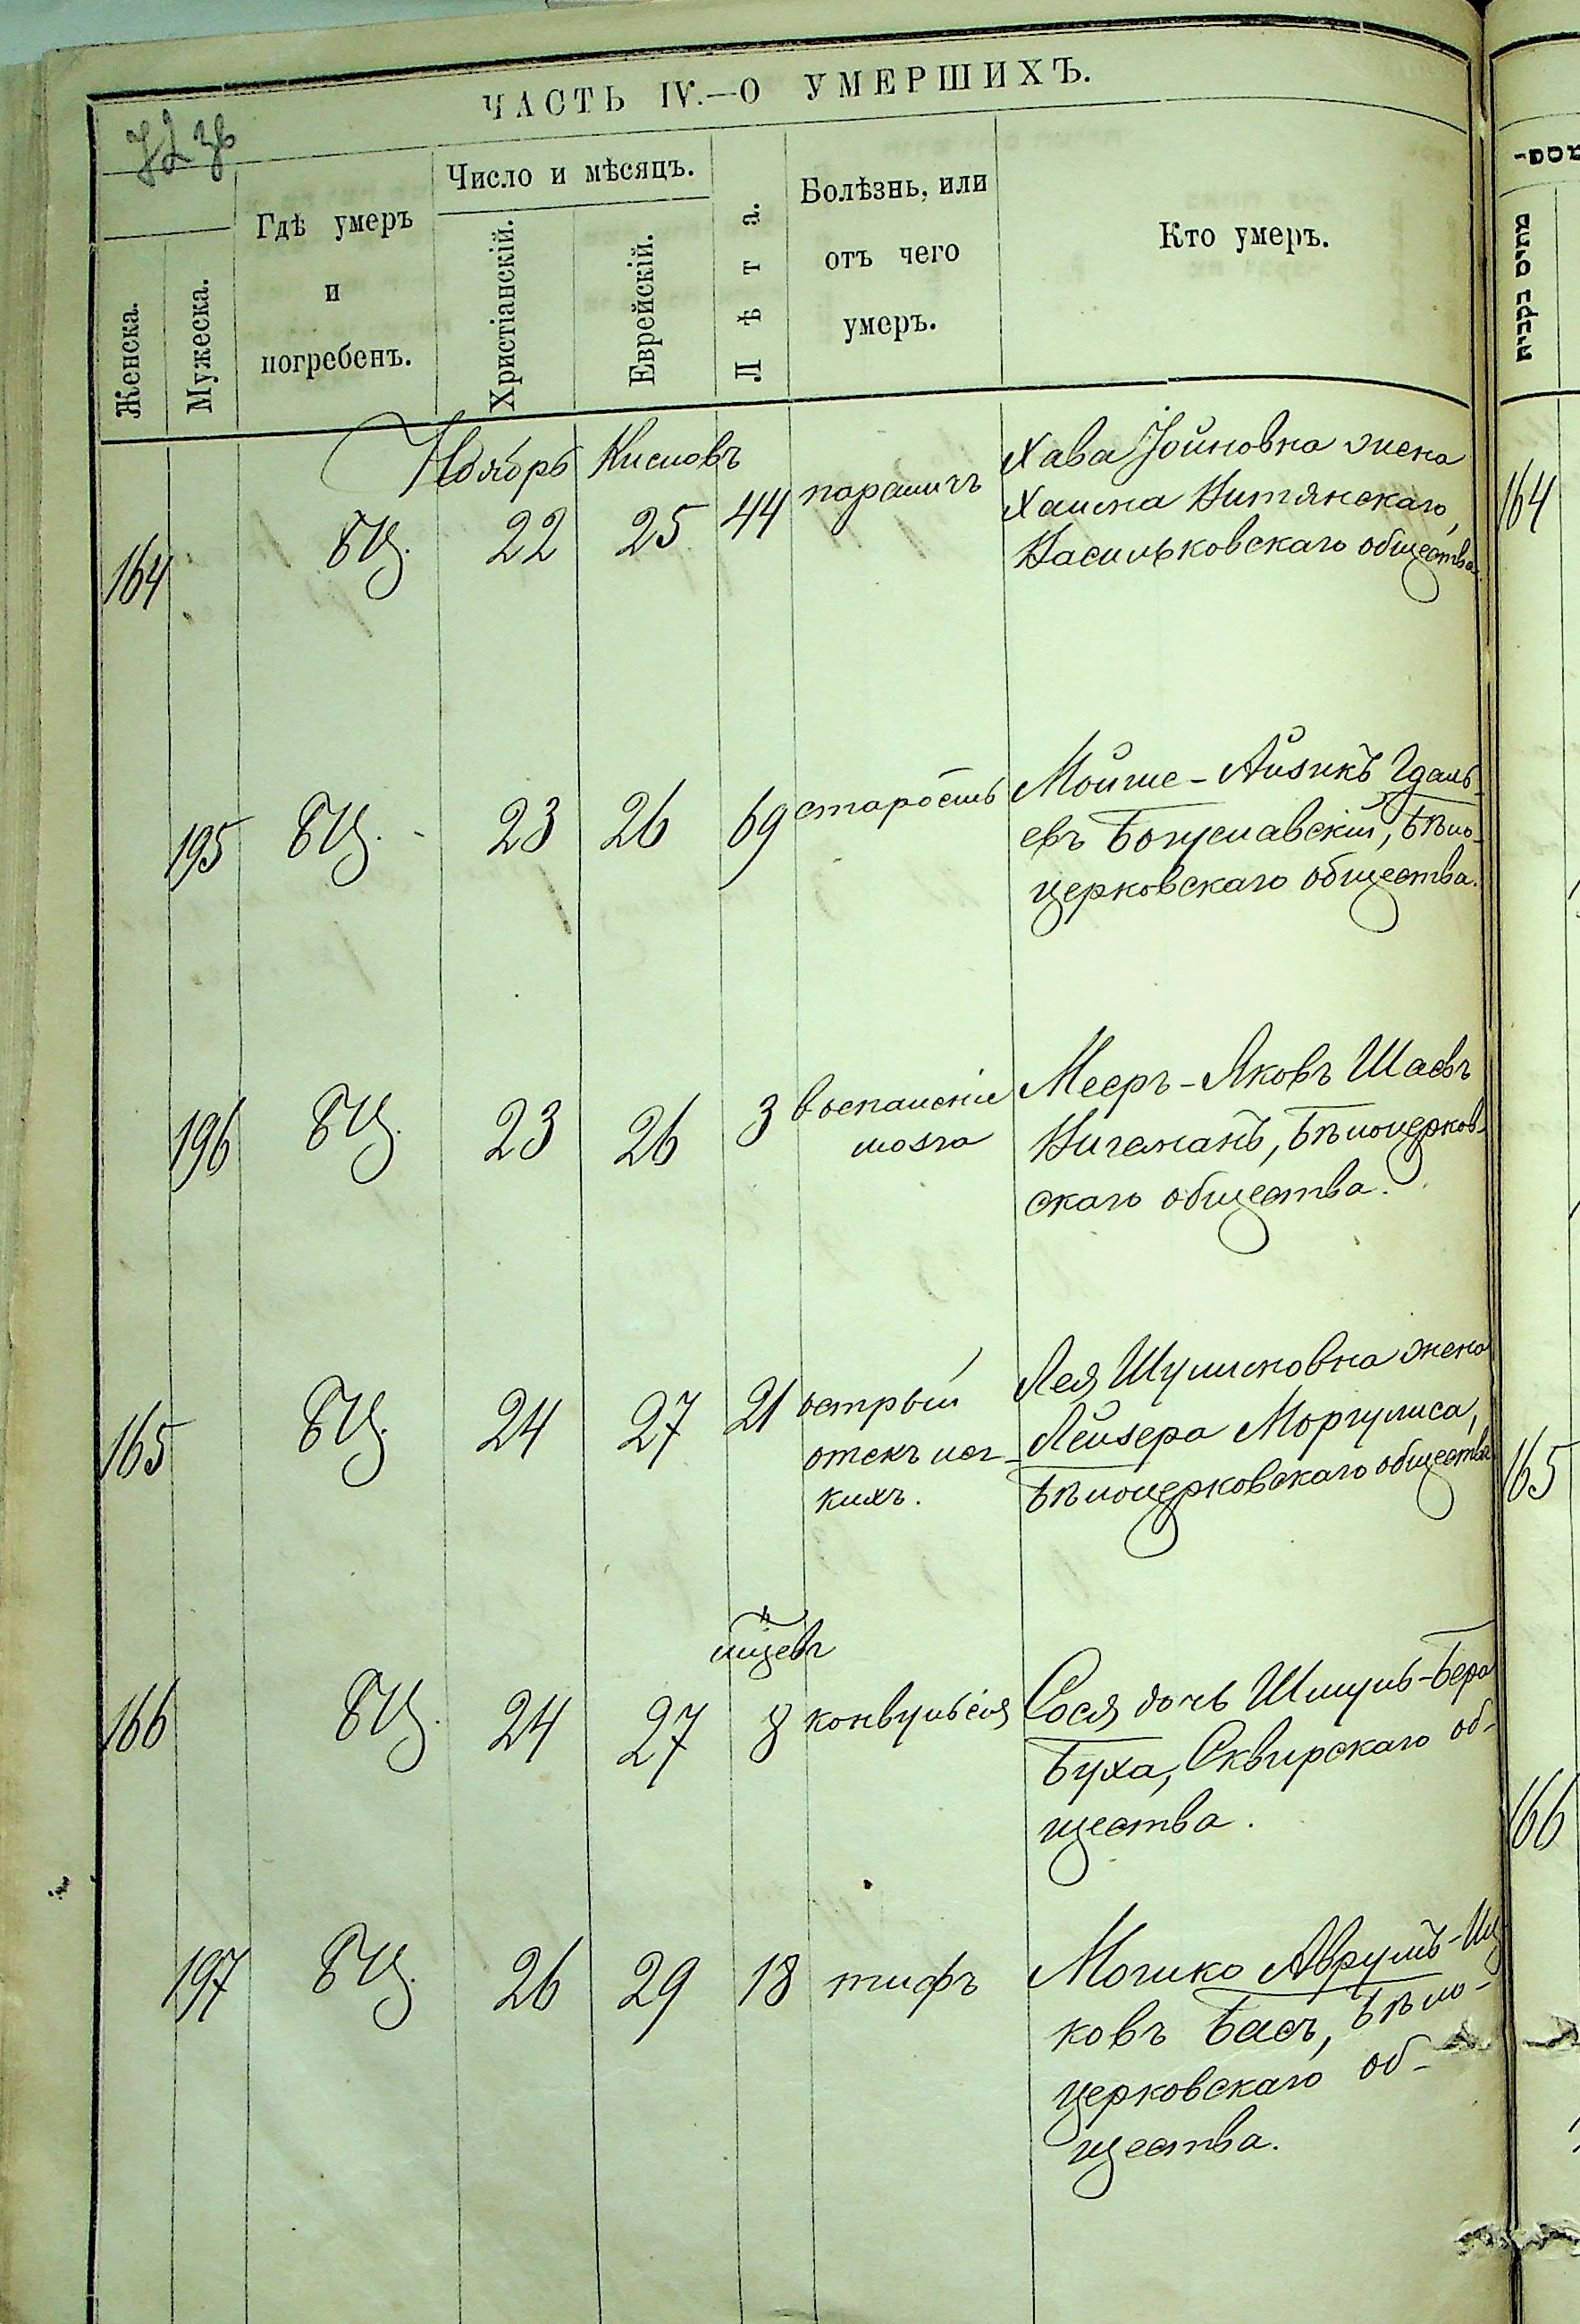 ЧАСТЬ IV.—О УМЕРШИХЪ.
Женска.
Мужеска.
Гдѣ умеръ
и
погребенъ.
Число и мѣсяцъ.
Христіанскій.
Еврейскій.
Лѣта.
Болѣзнь, или
отъ чего
умеръ.
Кто умеръ.
Ноябрь Кисловъ
164 БЦ. 22 25 44 параличъ
Хава Іойновна жена
Хаима
Васильковскаго общества.
195 БЦ. 23 26 69 старость
Мойше-Айзикъ Гдаль-
евъ Богуславскій, Бѣло-
церковскаго общества.
196 БЦ. 23 26 3 воспаленіе
мозга
Мееръ-Яковъ Шаевъ
Бѣлоцерков-
скаго общества.
165 БЦ. 24 27 21 острый
отекъ лег-
кихъ.
Лея Шулимовна жена
Лейзера Моргулиса,
Бѣлоцерковскаго общества
мѣсяцевъ
166 БЦ. 24 27 8 конвульсія
Сося дочь Шмуль-Бера
Буха, Сквирскаго об-
щества.
197 БЦ. 26 29 18 тифъ
Мошко Аврумъ-Иц
ковъ Басъ, Бѣло-
церковскаго об-
щества.
164
165
166